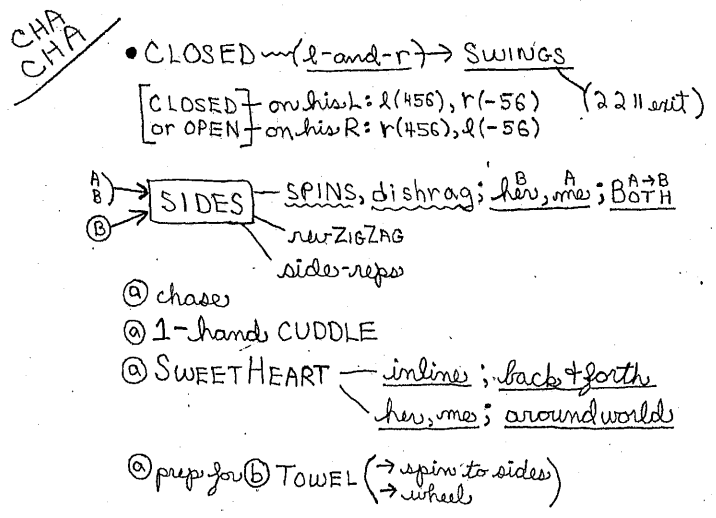 CHA
CHA
• CLOSED ~(l-and-r)→ SWINGS
[CLOSED] - on his L: l(456), r(-56) (2211 exit)
[or OPEN] - on his R: r(456), l(-56)
A B A A→B
B) → SIDES — SPINS, dishrag; her, me; BOTH
Ⓑ → rev ZIGZAG
side-reps
ⓐ chase
ⓐ 1-hand CUDDLE
ⓐ SWEETHEART — inline; back & forth
her, me; around world
ⓐ prep for ⓑ TOWEL (→ spin to sides)
→ wheel